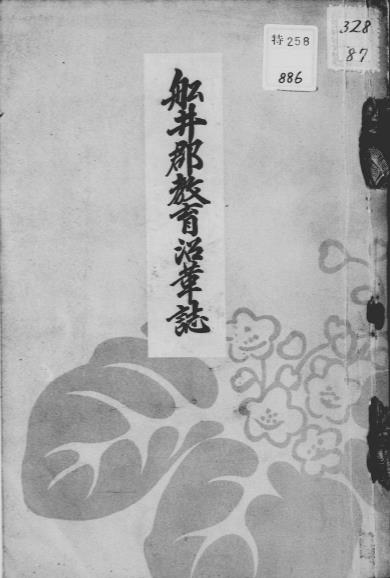 特258
886
328
87
船井郡教育沿革誌